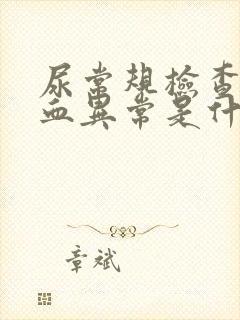 尿常规检查
血异常是什
章斌